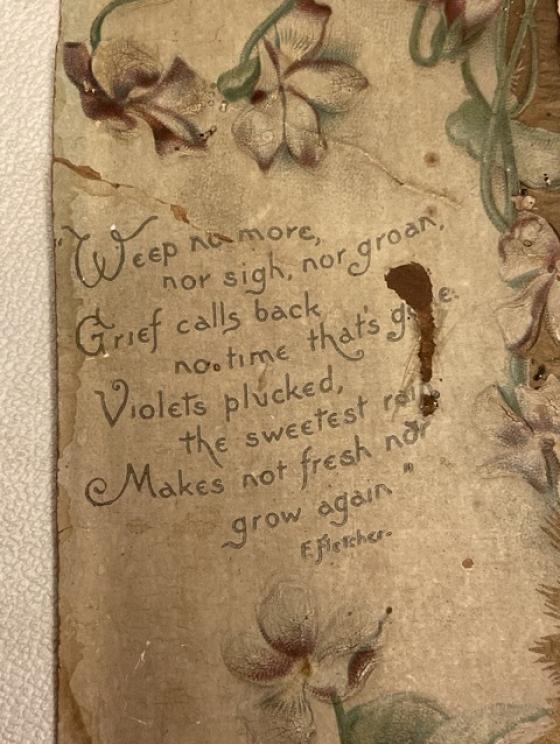 "Weep no more,
nor sigh, nor groan,
Grief calls back
no time that's
Violets plucked,
the sweetest rain
Makes not fresh nor
grow again"
F. Fletcher.